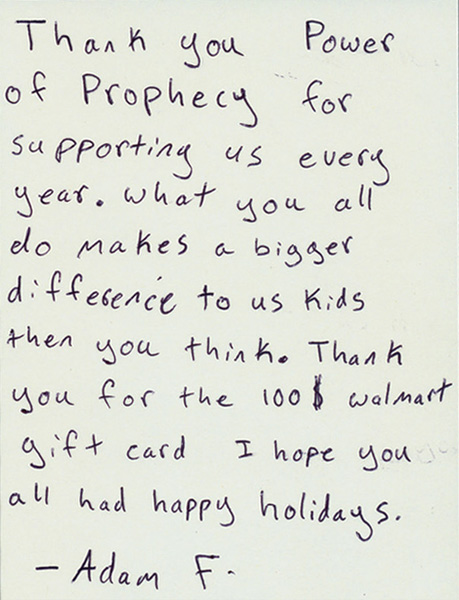 Thank you Power
of Prophecy for
supporting us every
year. what you all
do makes a bigger
difference to us Kids
then you think. Thank
you for the 100$ walmart
gift card I hope you
all had happy holidays.
- Adam F.